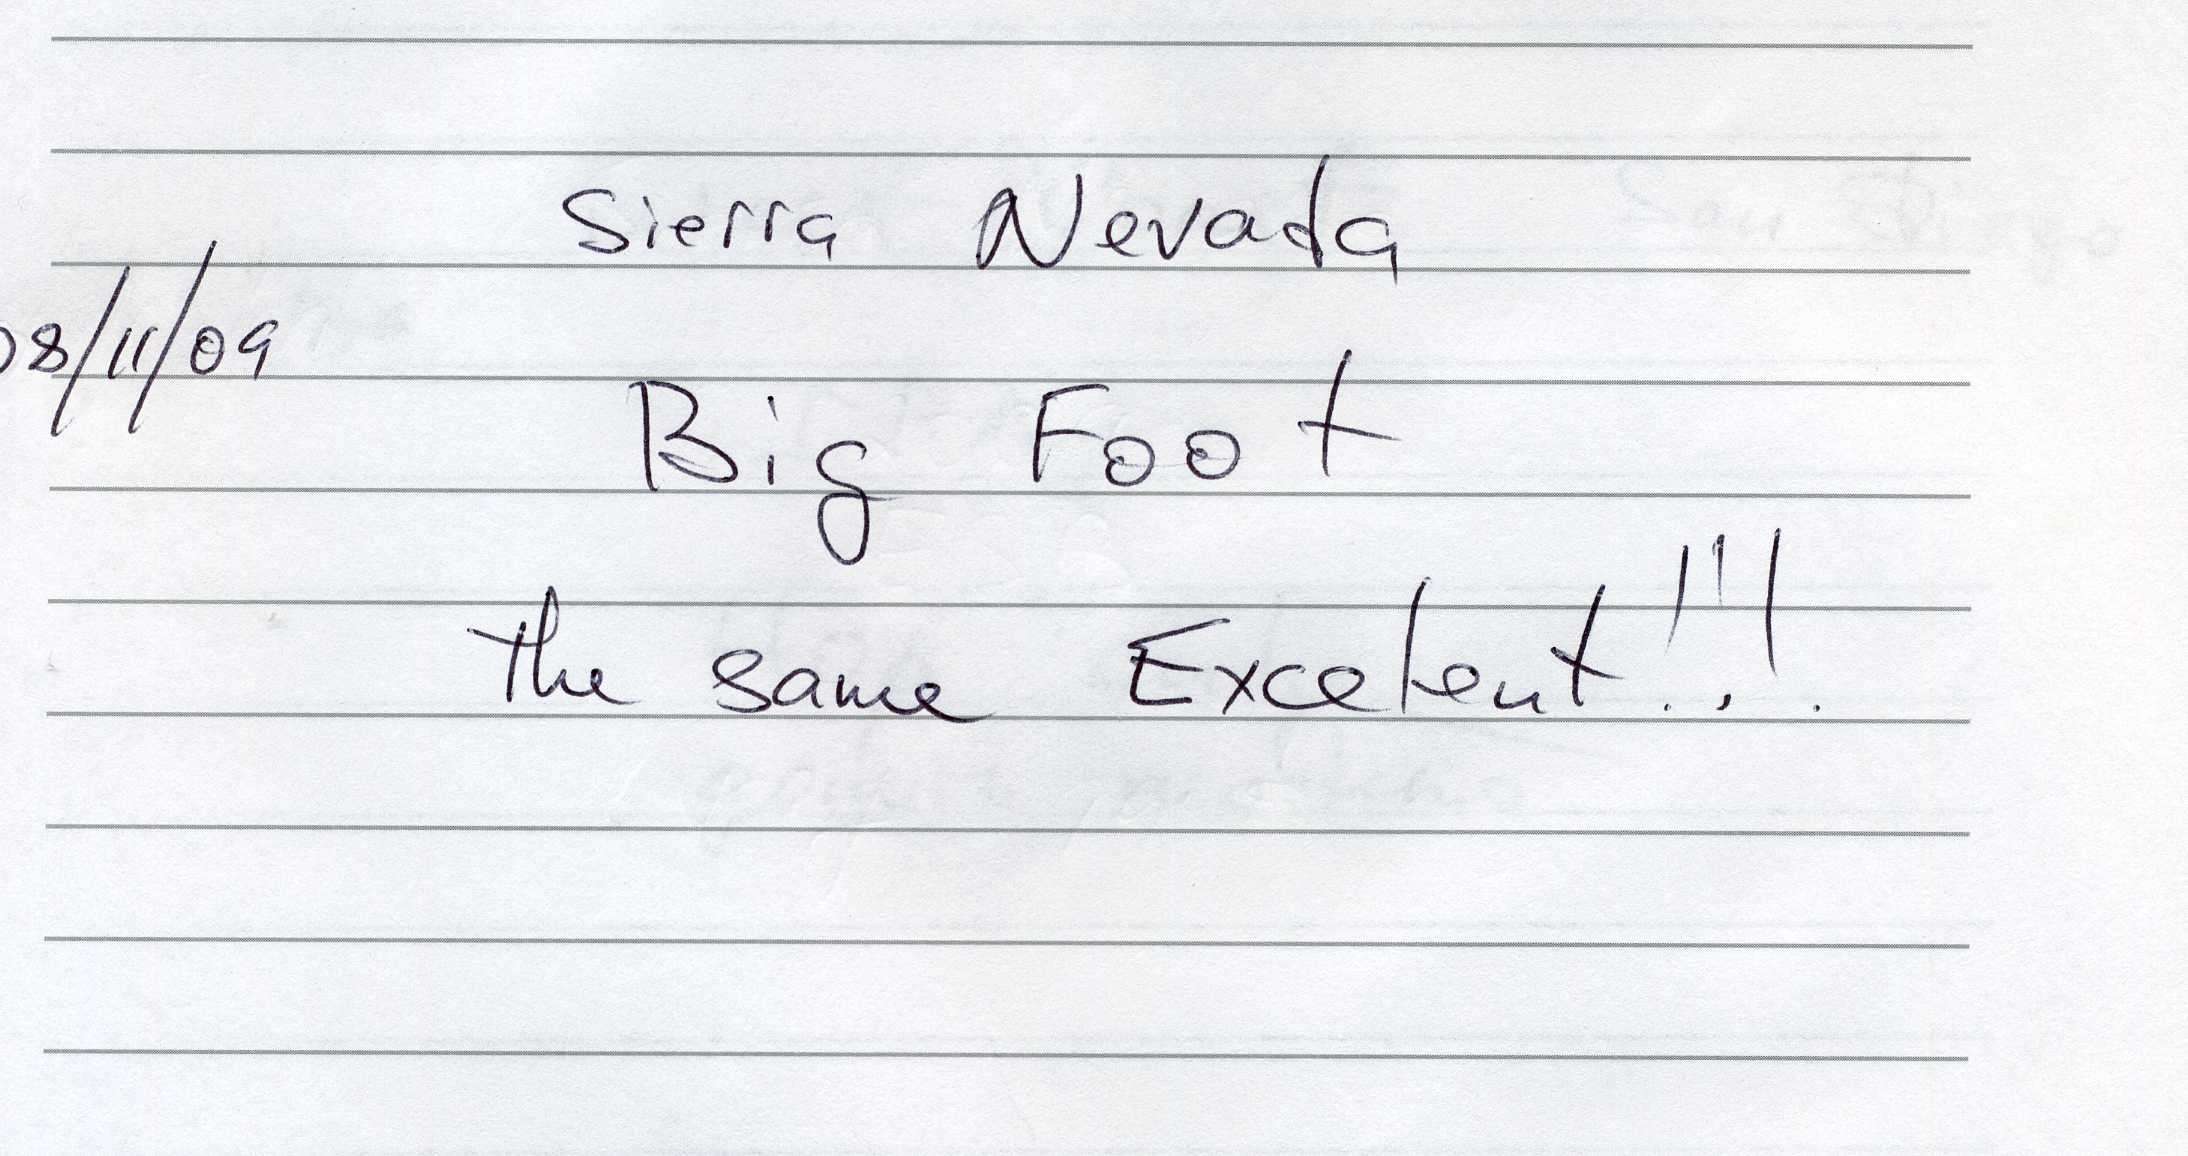 Sierra Nevada
08/11/09
Big Foot
the same Excelent!!!